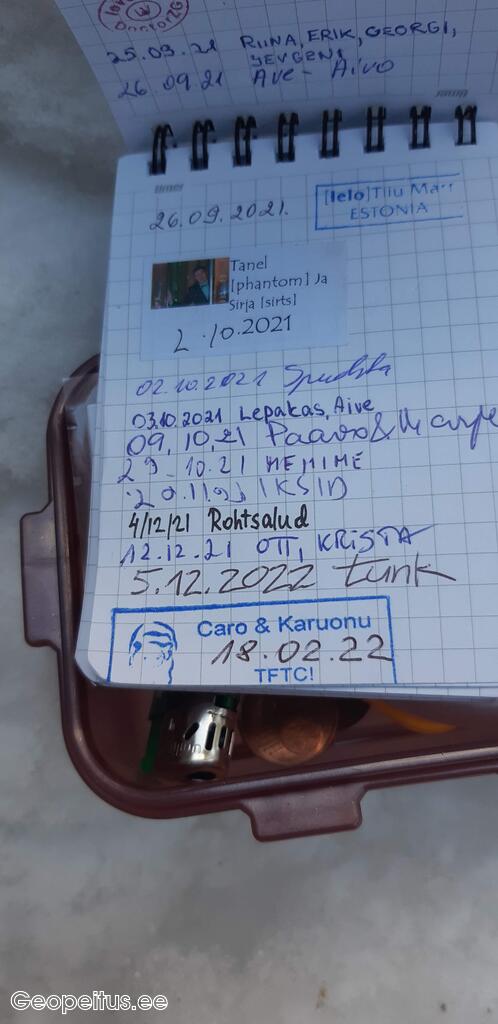 25.09.21 RIINA, ERIK, GEORGI,
JEVGENI
26.09.21 AVE - AIVO
26.09.2021.
[lelo] Tiiu
ESTONIA
Tanel
[phantom] Ja
Sirja [sirts]
2.10.2021
02.10.2021
03.10.2021 Lepakas, Aive
09.10.21 Paavo &
29.10.21 MEMIME
IKSID
4/12/21 Rohtsalud
12.12.21 OTT, KRISTA
5.12.2022 tunk
Caro & Karuonu
18.02.22
TFTC!
Geopeitus.ee